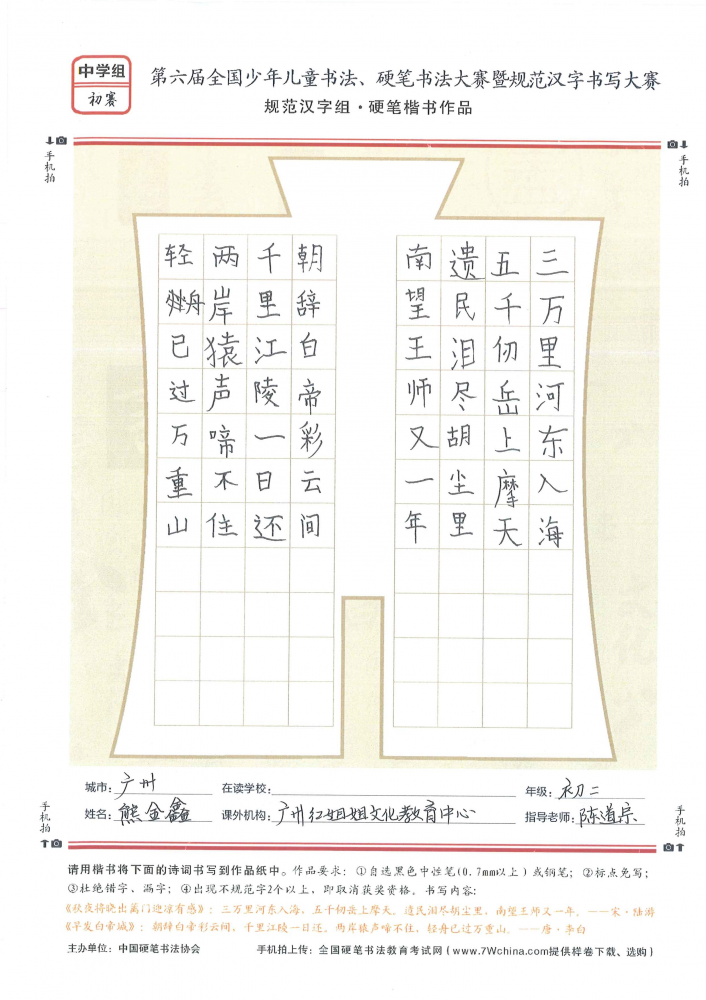 中学组
初赛
第六届全国少年儿童书法、硬笔书法大赛暨规范汉字书写大赛
规范汉字组·硬笔楷书作品
手机拍
手机拍
三万里河东入海
五千仞岳上摩天
遗民泪尽胡尘里
南望王师又一年
朝辞白帝彩云间
千里江陵一日还
两岸猿声啼不住
轻舟已过万重山
手机拍
手机拍
城市：广州 在读学校： 年级：初二
姓名：熊金鑫 课外机构：广州红姐姐文化教育中心 指导老师：陈道宗
请用楷书将下面的诗词书写到作品纸中。作品要求：①自选黑色中性笔(0.7mm以上)或钢笔；②标点免写；
③杜绝错字、漏字；④出现不规范字2个以上，即取消获奖资格。书写内容：
《秋夜将晓出篱门迎凉有感》：三万里河东入海，五千仞岳上摩天。遗民泪尽胡尘里，南望王师又一年。——宋·陆游
《早发白帝城》：朝辞白帝彩云间，千里江陵一日还。两岸猿声啼不住，轻舟已过万重山。——唐·李白
主办单位：中国硬笔书法协会 手机拍上传：全国硬笔书法教育考试网（www.7Wchina.com提供样卷下载、选购）